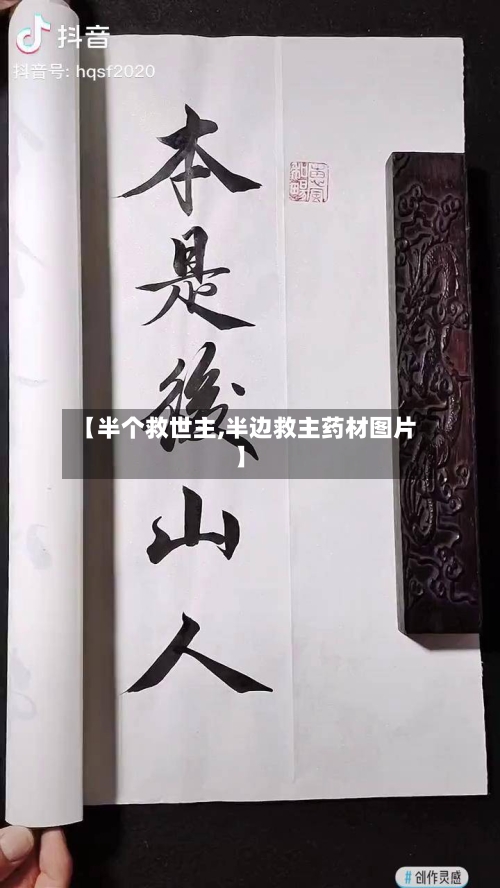 抖音
抖音号: hqsf2020
本是後山人
惠風和暢
【半个救世主,半边救主药材图片
】
#创作灵感